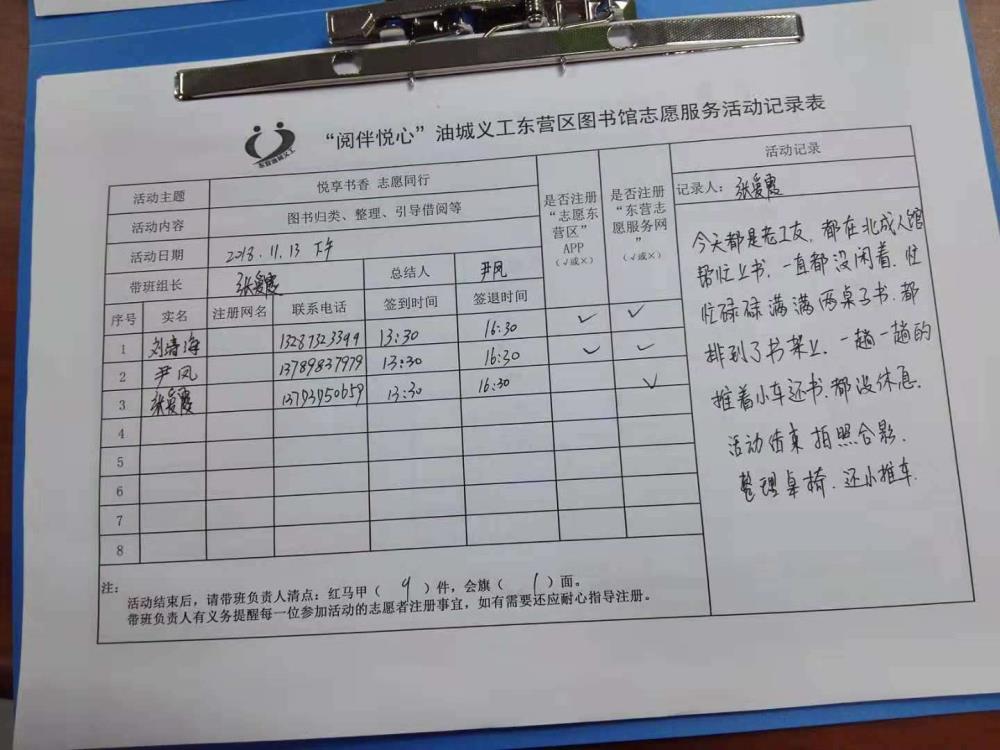 “阅伴悦心”油城义工东营区图书馆志愿服务活动记录表
东营油城义工
活动主题 悦享书香 志愿同行
活动内容 图书归类、整理、引导借阅等
活动日期 2018.11.13 下午
带班组长 张爱霞 总结人 尹凤
是否注册“志愿东营区”APP(√或×)
是否注册“东营志愿服务网”(√或×)
序号 实名 注册网名 联系电话 签到时间 签退时间
1 刘清海 13287323399 13:30 16:30 ✓ ✓
2 尹凤 13789837979 13:30 16:30 ✓ ✓
3 张爱霞 13793950659 13:30 16:30 ✓
4
5
6
7
8
注:
活动结束后,请带班负责人清点:红马甲( 9 )件,会旗( 1 )面。
带班负责人有义务提醒每一位参加活动的志愿者注册事宜,如有需要还应耐心指导注册。
活动记录
记录人: 张爱霞
今天都是老工友,都在北成人馆
帮忙上书.一直都没闲着.忙
忙碌碌满满两桌子书.都
排到了书架上.一趟一趟的
推着小车还书.都没休息.
活动结束拍照合影.
整理桌椅.还小推车.